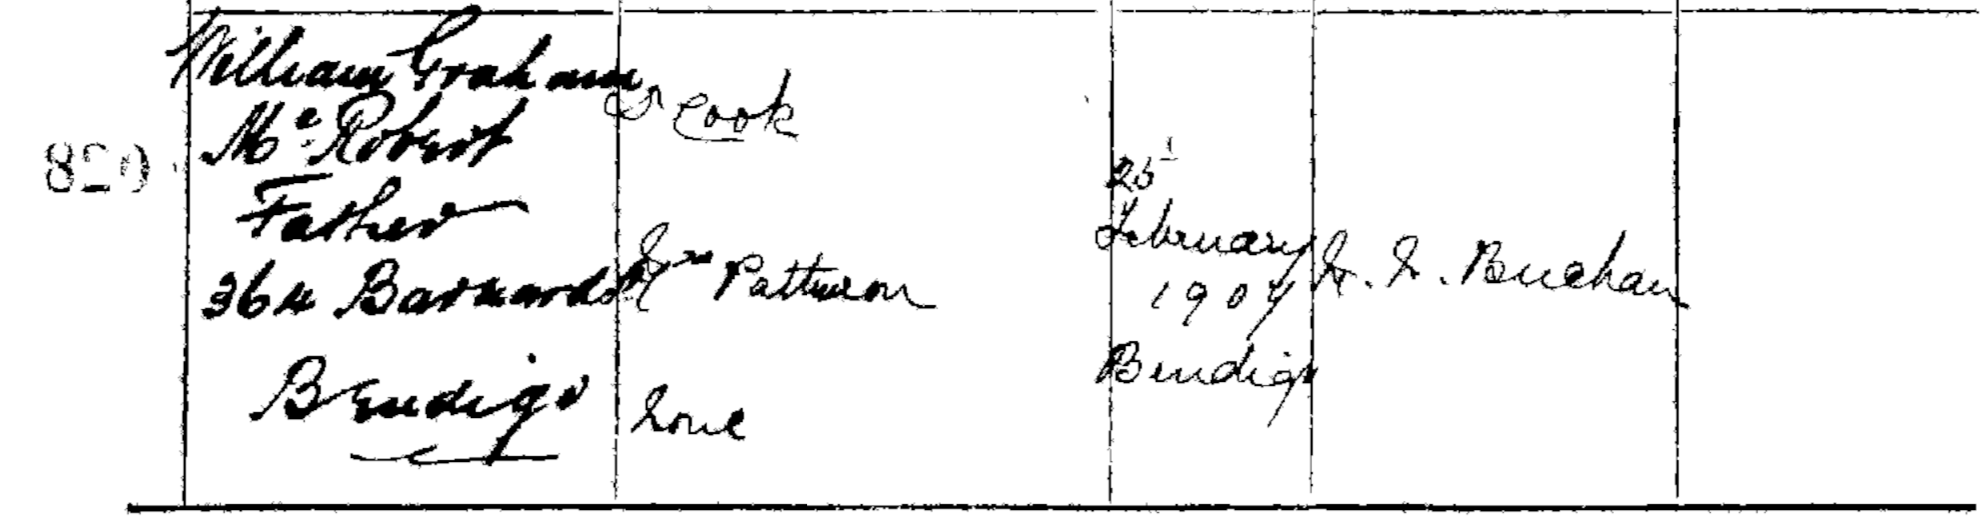 820
William Graham
Mc Robert
Father
364 Barnard St
Bendigo
Dr Cook
Mrs Patterson
None
25
February
1907
Bendigo
Buchan